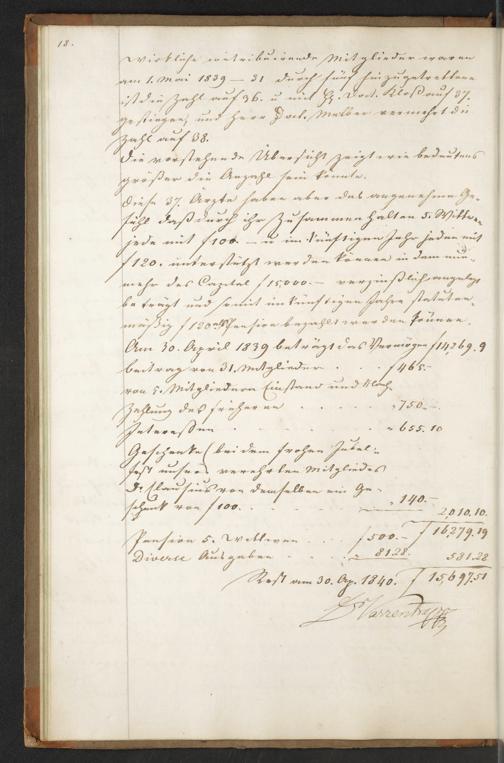 18.
wirkliche contribuirende Mitglieder waren
am 1. Mai 1839 — 31 durch fünf hinzugetrettene
ist die Zahl auf 36. u mit H. Doct. Kloß auf 37.
gestiegen, und Herr Doct. Melber vermehrt die
Zahl auf 38.
Die vorstehende Übersicht zeigt wie bedeutend
größer die Anzahl sein könnte.
Diese 37. Ärzte haben aber das angenehme Ge-
fühl daß durch ihr Zusammenhalten 5. Wittwen
jede mit f 100 — u im künftigen Jahr jede mit
f 120. unterstützt werden können indem nun-
mehr das Capital f 15,000. — verzinßlich angelegt
beträgt und somit im künftigen Jahre statuten-
mäßig f 120 Pension bezahlt werden können.
Am 30. April 1839 beträgt das Vermögen f 14,269.9
beitrag von 31. Mitglieder . . f 465.-
von 5. Mitgliedern Einstand und Nach-
Zahlung des früheren . . . . . „ 750.-
Interessen . . . . . „ 655.10
Geschenke (bei dem frohen Jubel-
fest unseres verehrten Mitgliedes
Dr Clausius von demselben ein Ge-
schenk von f 100. . . . . . „ 140.-
2,010.10.
f 16,279.19
Pension 5. Wittwen . . . f 500.-
Diverse Ausgaben . . . „ 81.28. 581.28
Rest am 30. Ap. 1840. f 15,697.51